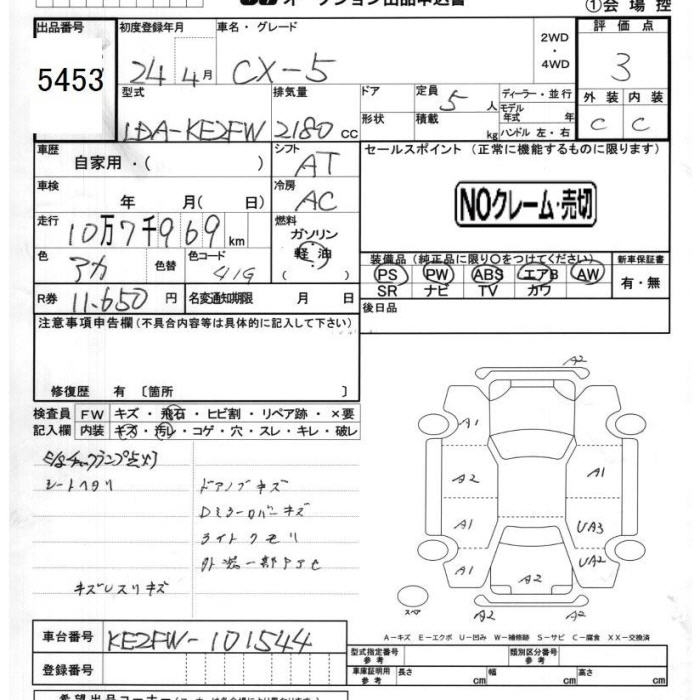 オークション出品申込書
①会場控
出品番号 初度登録年月 車名・グレード 2WD ・ 4WD 評価点
5453 24 4月 CX-5 3
型式 排気量 ドア 定員 5 人 ディーラー・並行 外装 内装
LDA-KE2FW 2180 cc 形状 積載 kg モデル年式 年 C C
ハンドル 左・右
車歴 自家用・( ) シフト AT セールスポイント (正常に機能するものに限ります)
車検 年 月( 日) 冷房 AC
NOクレーム・売切
走行 10万7千969 km 燃料 ガソリン 軽油 ( ・ )
装備品(純正品に限り〇をつけてください) 新車保証書
色 アカ 色替 色コード 41G PS PW ABS エアB AW 有・無
SR ナビ TV カワ
R券 11.650 円 名変通知期限 月 日 後日品
注意事項申告欄(不具合内容等は具体的に記入して下さい)
修復歴 有 〔箇所 〕
検査員 FW キズ・飛石・ヒビ割・リペア跡・×要
記入欄 内装 キズ・汚レ・コゲ・穴・スレ・キレ・破レ
シートヘタリ
ドアノブキズ
Dミラーカバーキズ
ライトクモリ
外装一部
A2
A1
A2 A1
A1 UA3
A1 A2 UA2
A2 A2
スペア
A-キズ E-エクボ U-凹み W-補修跡 S-サビ C-腐食 XX-交換済
車台番号 KE2FW-101544
型式指定番号 参考 類別区分番号 参考
登録番号 車庫証明用 参考 長さ cm 幅 cm 高さ cm
希望出品コーナー